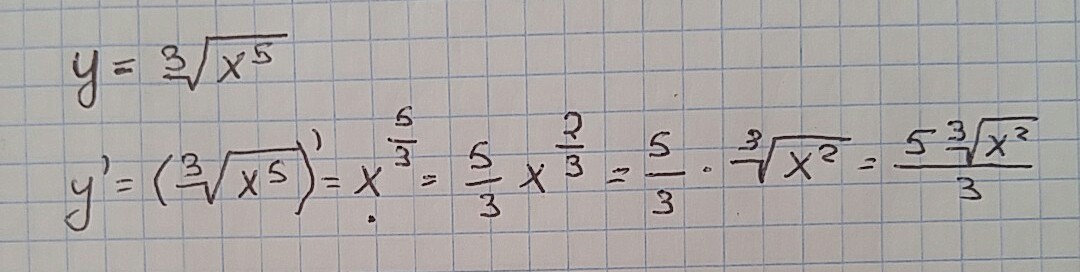 y = ∛(x⁵)
y' = (∛(x⁵))' = x^(5/3) = 5/3 x^(2/3) = 5/3 · ∛(x²) = 5∛(x²)/3